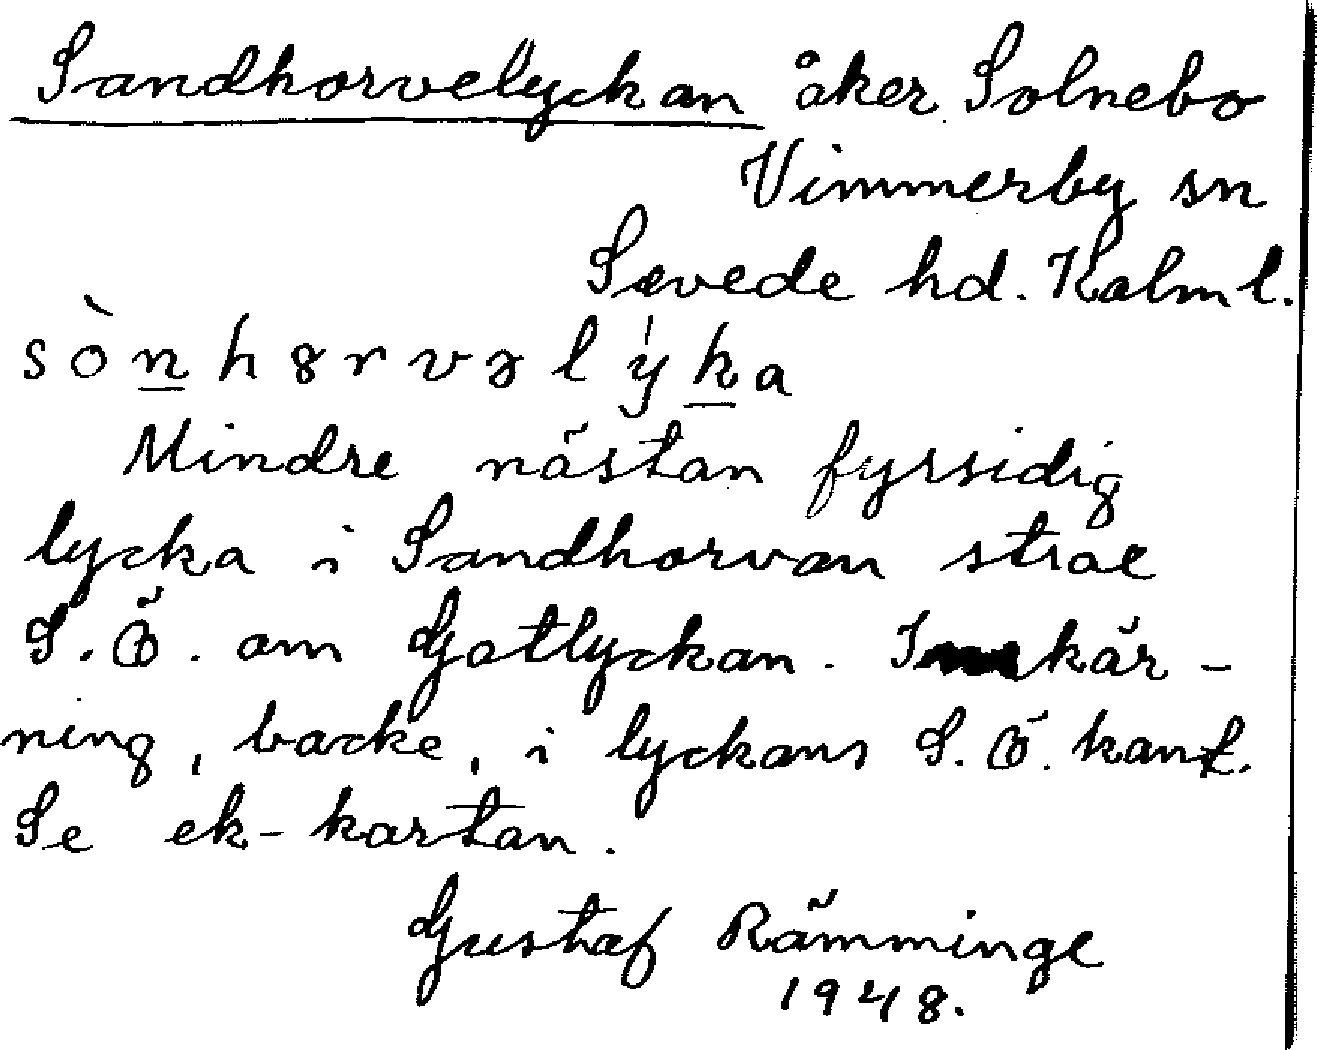 Sandhorvelyckan åker Solnebo
Vimmerby sn
Sevede hd. Kalm l.
sò̀n̲hɵrvəlýk̲a
Mindre nästan fyrsidig
lycka i Sandhorvan strax
S.Ö. om Gotlyckan. Inskär-
ning, backe, i lyckans S.Ö. kant.
Se ek-kartan.
Gustaf Rämminge
1948.